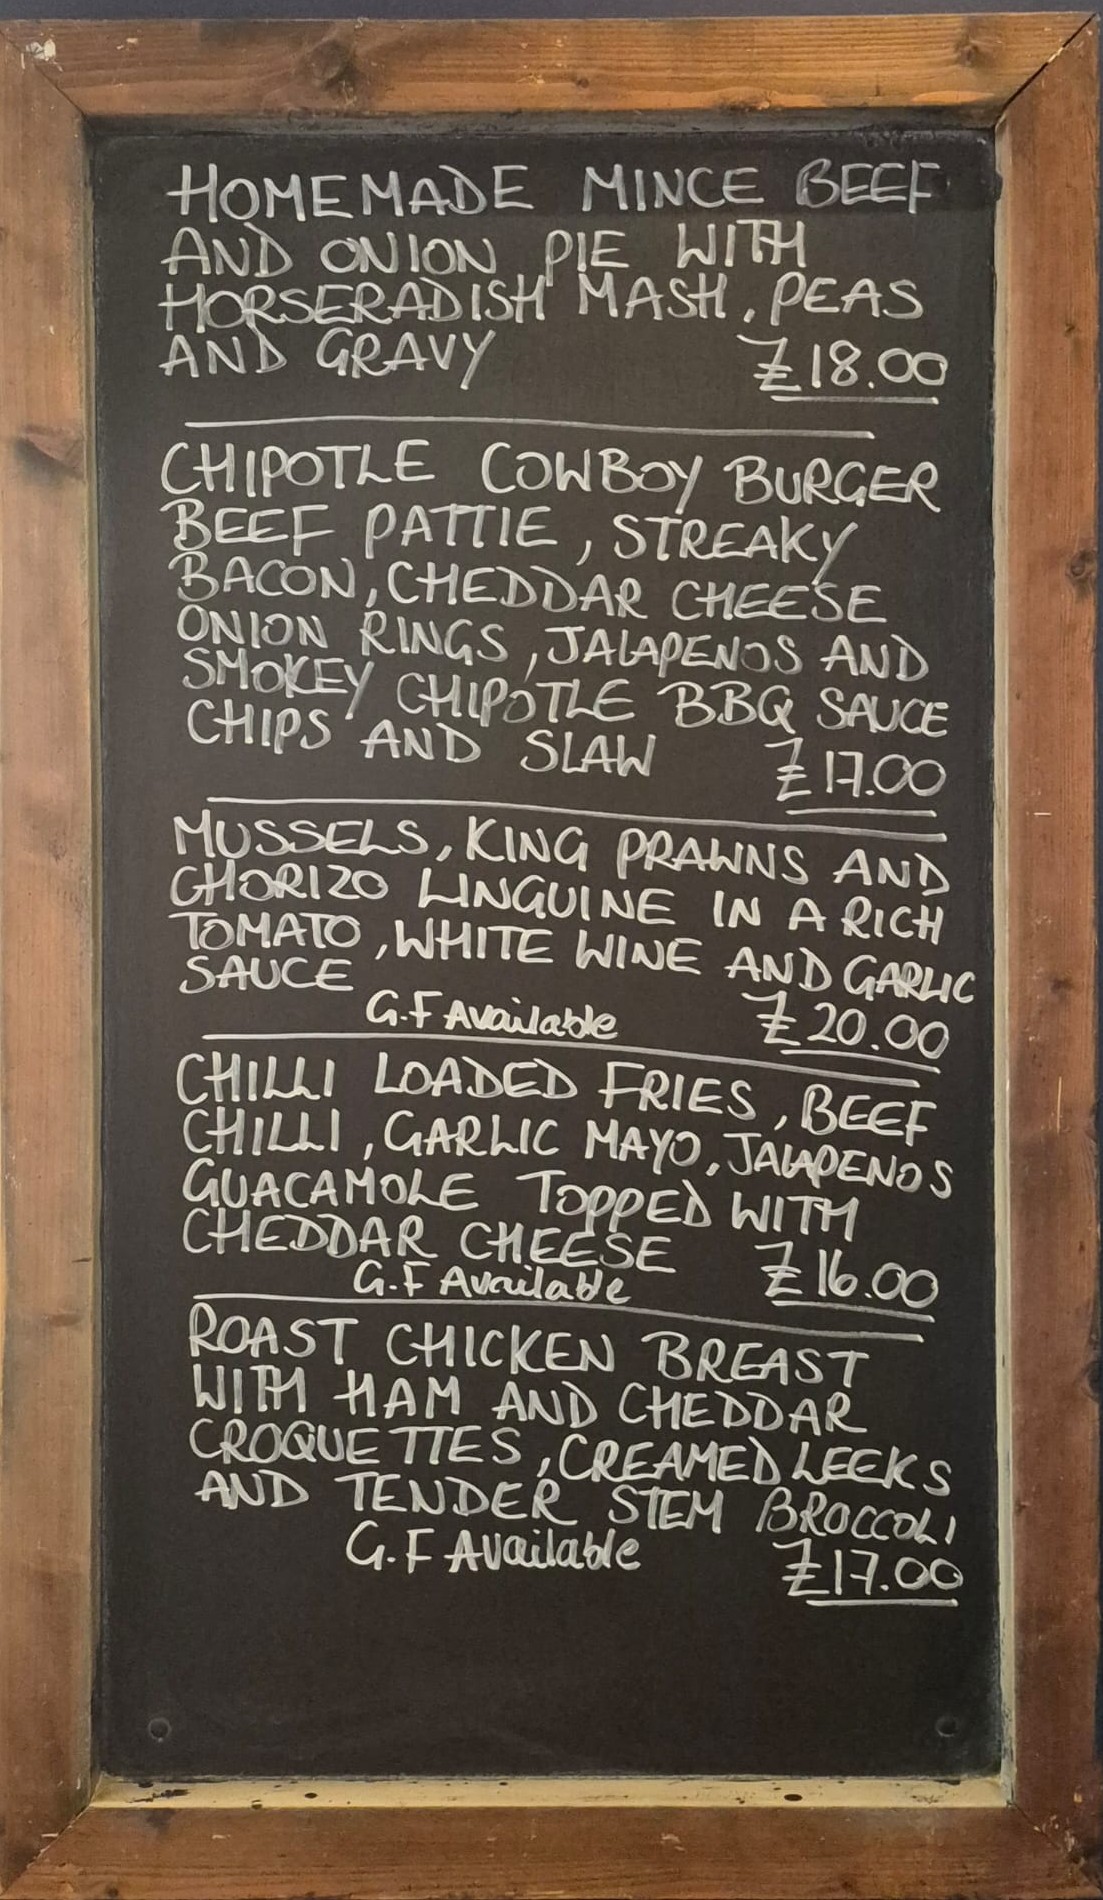 HOMEMADE MINCE BEEF
AND ONION PIE WITH
HORSERADISH MASH, PEAS
AND GRAVY £18.00
CHIPOTLE COWBOY BURGER
BEEF PATTIE, STREAKY
BACON, CHEDDAR CHEESE
ONION RINGS, JALAPENOS AND
SMOKEY CHIPOTLE BBQ SAUCE
CHIPS AND SLAW £17.00
MUSSELS, KING PRAWNS AND
CHORIZO LINGUINE IN A RICH
TOMATO, WHITE WINE AND GARLIC
SAUCE
G.F Available £20.00
CHILLI LOADED FRIES, BEEF
CHILLI, GARLIC MAYO, JALAPENOS
GUACAMOLE TOPPED WITH
CHEDDAR CHEESE £16.00
G.F Available
ROAST CHICKEN BREAST
WITH HAM AND CHEDDAR
CROQUETTES, CREAMED LEEKS
AND TENDER STEM BROCCOLI
G.F Available £17.00